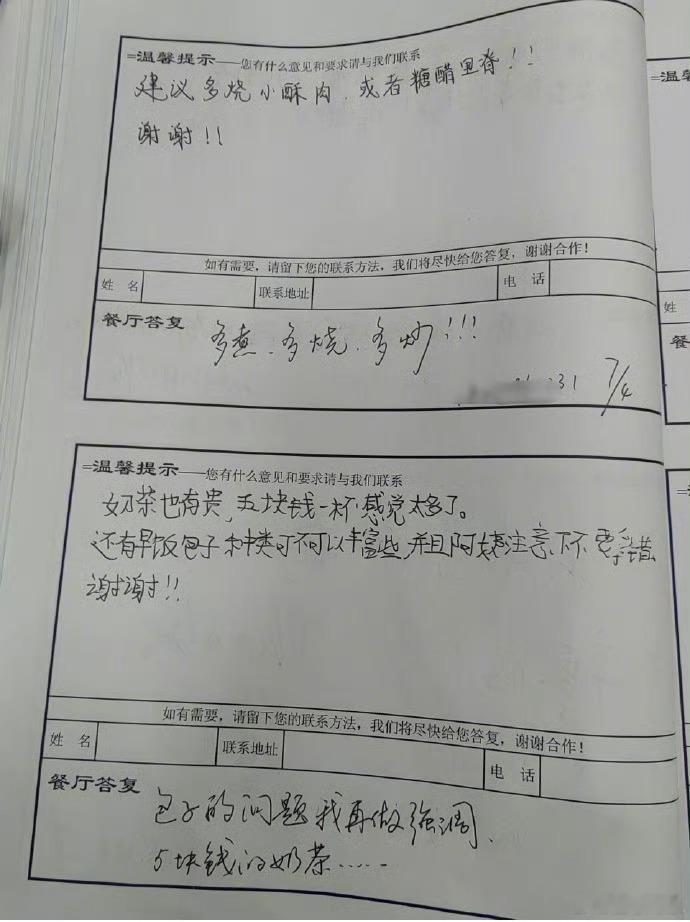 =温馨提示——您有什么意见和要求请与我们联系
建议多烧小酥肉,或者糖醋里脊!!
谢谢!!
如有需要,请留下您的联系方法,我们将尽快给您答复,谢谢合作!
姓 名 联系地址 电 话
餐厅答复
多煮、多烧、多炒!!!
31 7/4
=温馨提示——您有什么意见和要求请与我们联系
奶茶也有贵,五块钱一杯感觉太多了。
还有早饭包子种类可不可以丰富些,并且阿姨注意下不要拿错
谢谢!!
如有需要,请留下您的联系方法,我们将尽快给您答复,谢谢合作!
姓 名 联系地址 电 话
餐厅答复
包子的问题我再做强调、
5块钱的奶茶……
=温
姓
餐